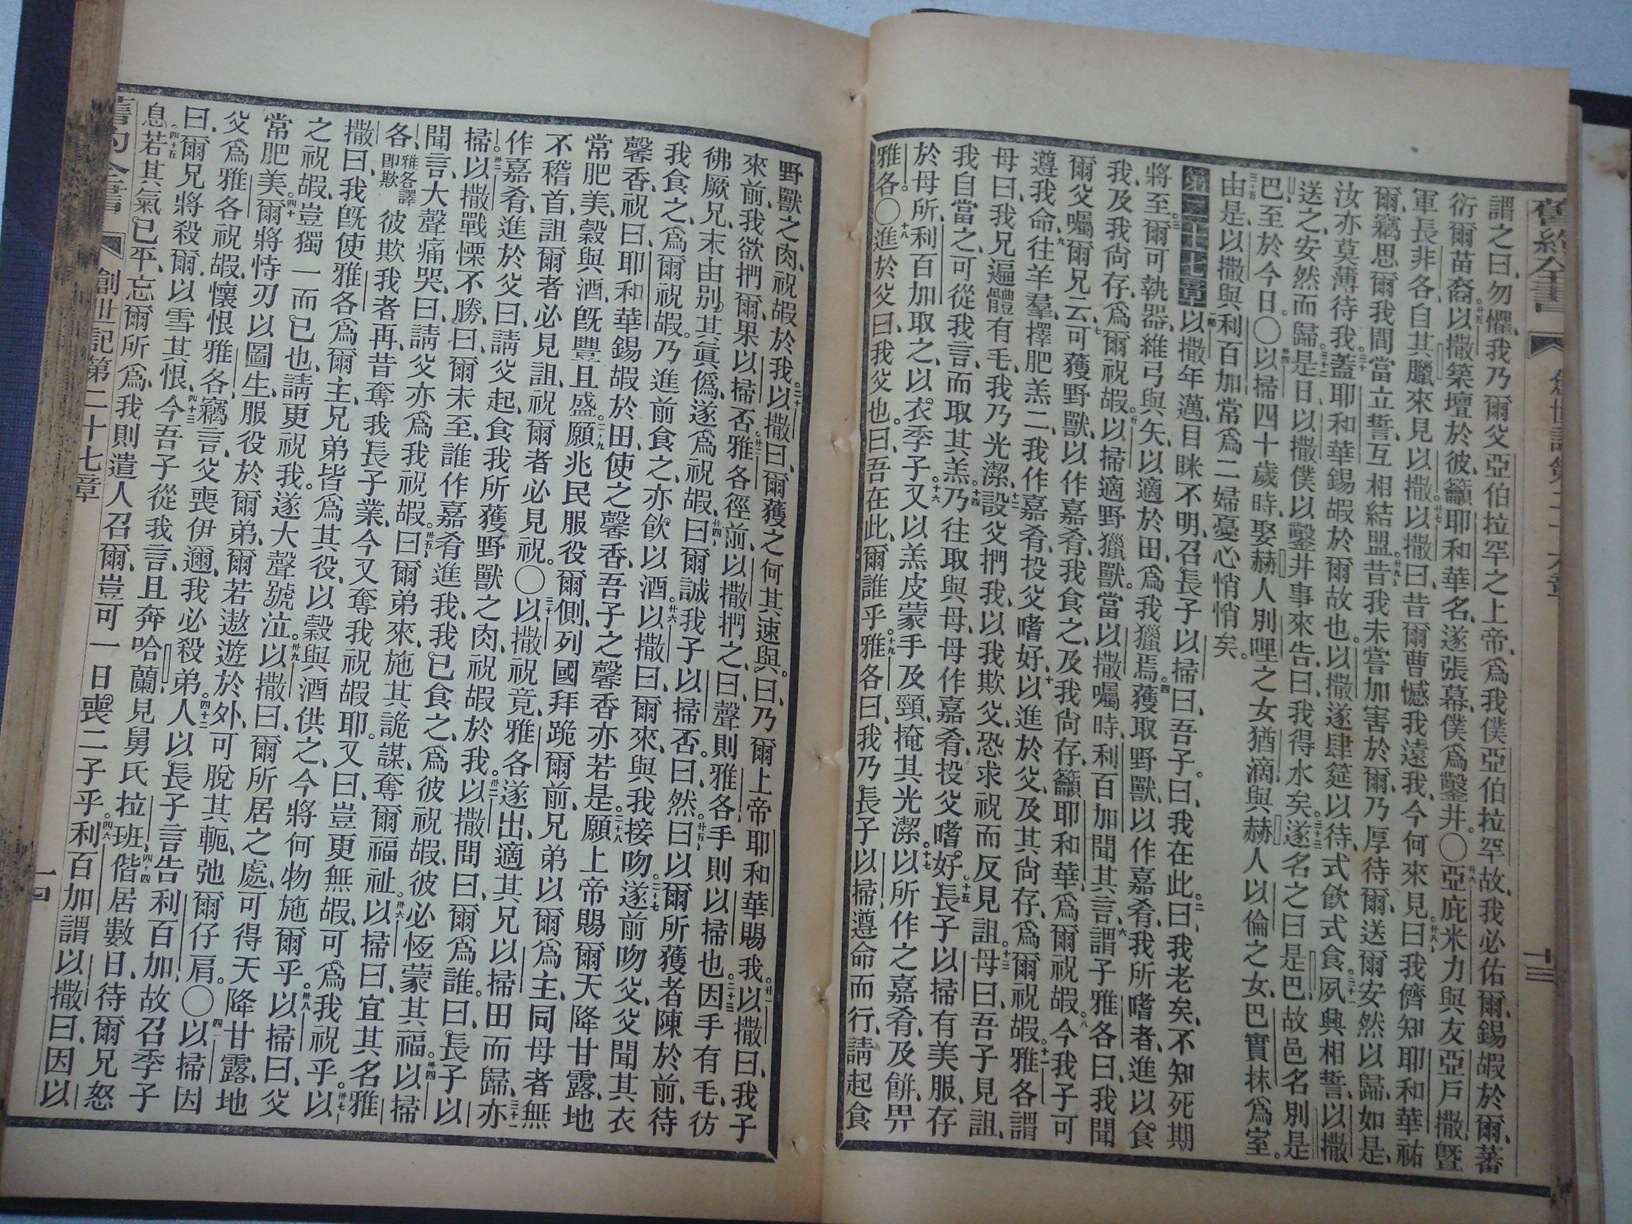 舊約全書 創世記第二十六章 十三
謂之曰、勿懼、我乃爾父亞伯拉罕之上帝、爲我僕亞伯拉罕故、我必佑爾、錫嘏於爾、蕃
衍爾苗裔、以撒築壇於彼、籲耶和華名、遂張幕、僕爲鑿井。〇亞庇米力與友亞戶撒、曁
軍長非各、自其臘來見以撒、以撒曰、昔爾曹憾我遠我、今何來見、曰、我儕知耶和華祐
爾、竊思爾我間當立誓、互相結盟、昔我未嘗加害於爾、乃厚待爾、送爾安然以歸、如是、
汝亦莫薄待我、蓋耶和華錫嘏於爾故也。以撒遂肆筵以待、式飮式食、夙興相誓、以撒
送之、安然而歸、是日以撒僕以鑿井事來告曰、我得水矣、遂名之曰是巴、故邑名別是
巴、至於今日。〇以掃四十歲時、娶赫人別哩之女猶滴、與赫人以倫之女巴實抹爲室。
由是以撒與利百加常爲二婦憂心悄悄矣。
第二十七章 以撒年邁、目眯不明、召長子以掃曰、吾子。曰、我在此。曰、我老矣、不知死期
將至、爾可執器、維弓與矢、以適於田、爲我獵焉、獲取野獸、以作嘉肴、我所嗜者、進以食
我、及我尙存、爲爾祝嘏、以掃適野獵獸、當以撒囑時、利百加聞其言、謂子雅各曰、我聞
爾父囑爾兄云、可獲野獸、以作嘉肴、我食之、及我尙存、籲耶和華、爲爾祝嘏、今我子可
遵我命、往羊羣、擇肥羔二、我作嘉肴、投父嗜好、以進於父、及其尙存、爲爾祝嘏、雅各謂
母曰、我兄遍體有毛、我乃光潔、設父捫我、以我欺父、恐求祝而反見詛、母曰、吾子見詛、
我自當之、可從我言、而取其羔、乃往取與母、母作嘉肴、投父嗜好、長子以掃有美服、存
於母所、利百加取之、以衣季子、又以羔皮蒙手及頸、掩其光潔、以所作之嘉肴及餠、畀
雅各。〇進於父曰、我父也。曰、吾在此、爾誰乎。雅各曰、我乃長子以掃、遵命而行、請起食
野獸之肉、祝嘏於我、以撒曰、爾獲之何其速與。曰、乃爾上帝耶和華賜我、以撒曰、我子
來前、我欲捫爾、果以掃否、雅各徑前、以撒捫之曰、聲則雅各、手則以掃也、因手有毛、彷
彿厥兄、末由別其眞僞、遂爲祝嘏、曰、爾誠我子以掃否。曰、然。曰、以爾所獲者陳於前、待
我食之、爲爾祝嘏。乃進前食之、亦飮以酒、以撒曰、爾來、與我接吻、遂前吻父、父聞其衣
馨香、祝曰、耶和華錫嘏於田、使之馨香、吾子之馨香亦若是、願上帝賜爾天降甘露、地
常肥美、穀與酒、旣豐且盛、願兆民服役爾側、列國拜跪爾前、兄弟以爾爲主、同母者無
不稽首、詛爾者必見詛、祝爾者必見祝。〇以撒祝竟、雅各遂出、適其兄以掃田而歸、亦
作嘉肴、進於父曰、請父起食我所獲野獸之肉、祝嘏於我、以撒問曰、爾爲誰。曰、長子以
掃、以撒戰慄不勝、曰、爾未至、誰作嘉肴進我、我已食之、爲彼祝嘏、彼必恆蒙其福。以掃
聞言、大聲痛哭曰、請父亦爲我祝嘏。曰、爾弟來、施其詭謀、奪爾福祉、以掃曰、宜其名雅
各、雅各譯即欺 彼欺我者再、昔奪我長子業、今又奪我祝嘏耶、又曰、豈更無嘏、可爲我祝乎。以
撒曰、我旣使雅各爲爾主、兄弟皆爲其役、以穀與酒供之、今將何物施爾乎、以掃曰、父
之祝嘏、豈獨一而已也、請更祝我、遂大聲號泣。以撒曰、爾所居之處、可得天降甘露、地
常肥美、爾將恃刃以圖生、服役於爾弟、爾若遨遊於外、可脫其軛、弛爾仔肩。〇以掃因
父爲雅各祝嘏、懷恨雅各、竊言父喪伊邇、我必殺弟、人以長子言告利百加、故召季子
曰、爾兄將殺爾、以雪其恨、今吾子從我言、且奔哈蘭、見舅氏拉班、偕居數日、待爾兄怒
息、若其氣已平、忘爾所爲、我則遣人召爾、豈可一日喪二子乎。利百加謂以撒曰、因以
舊約全書 創世記第二十七章 十四